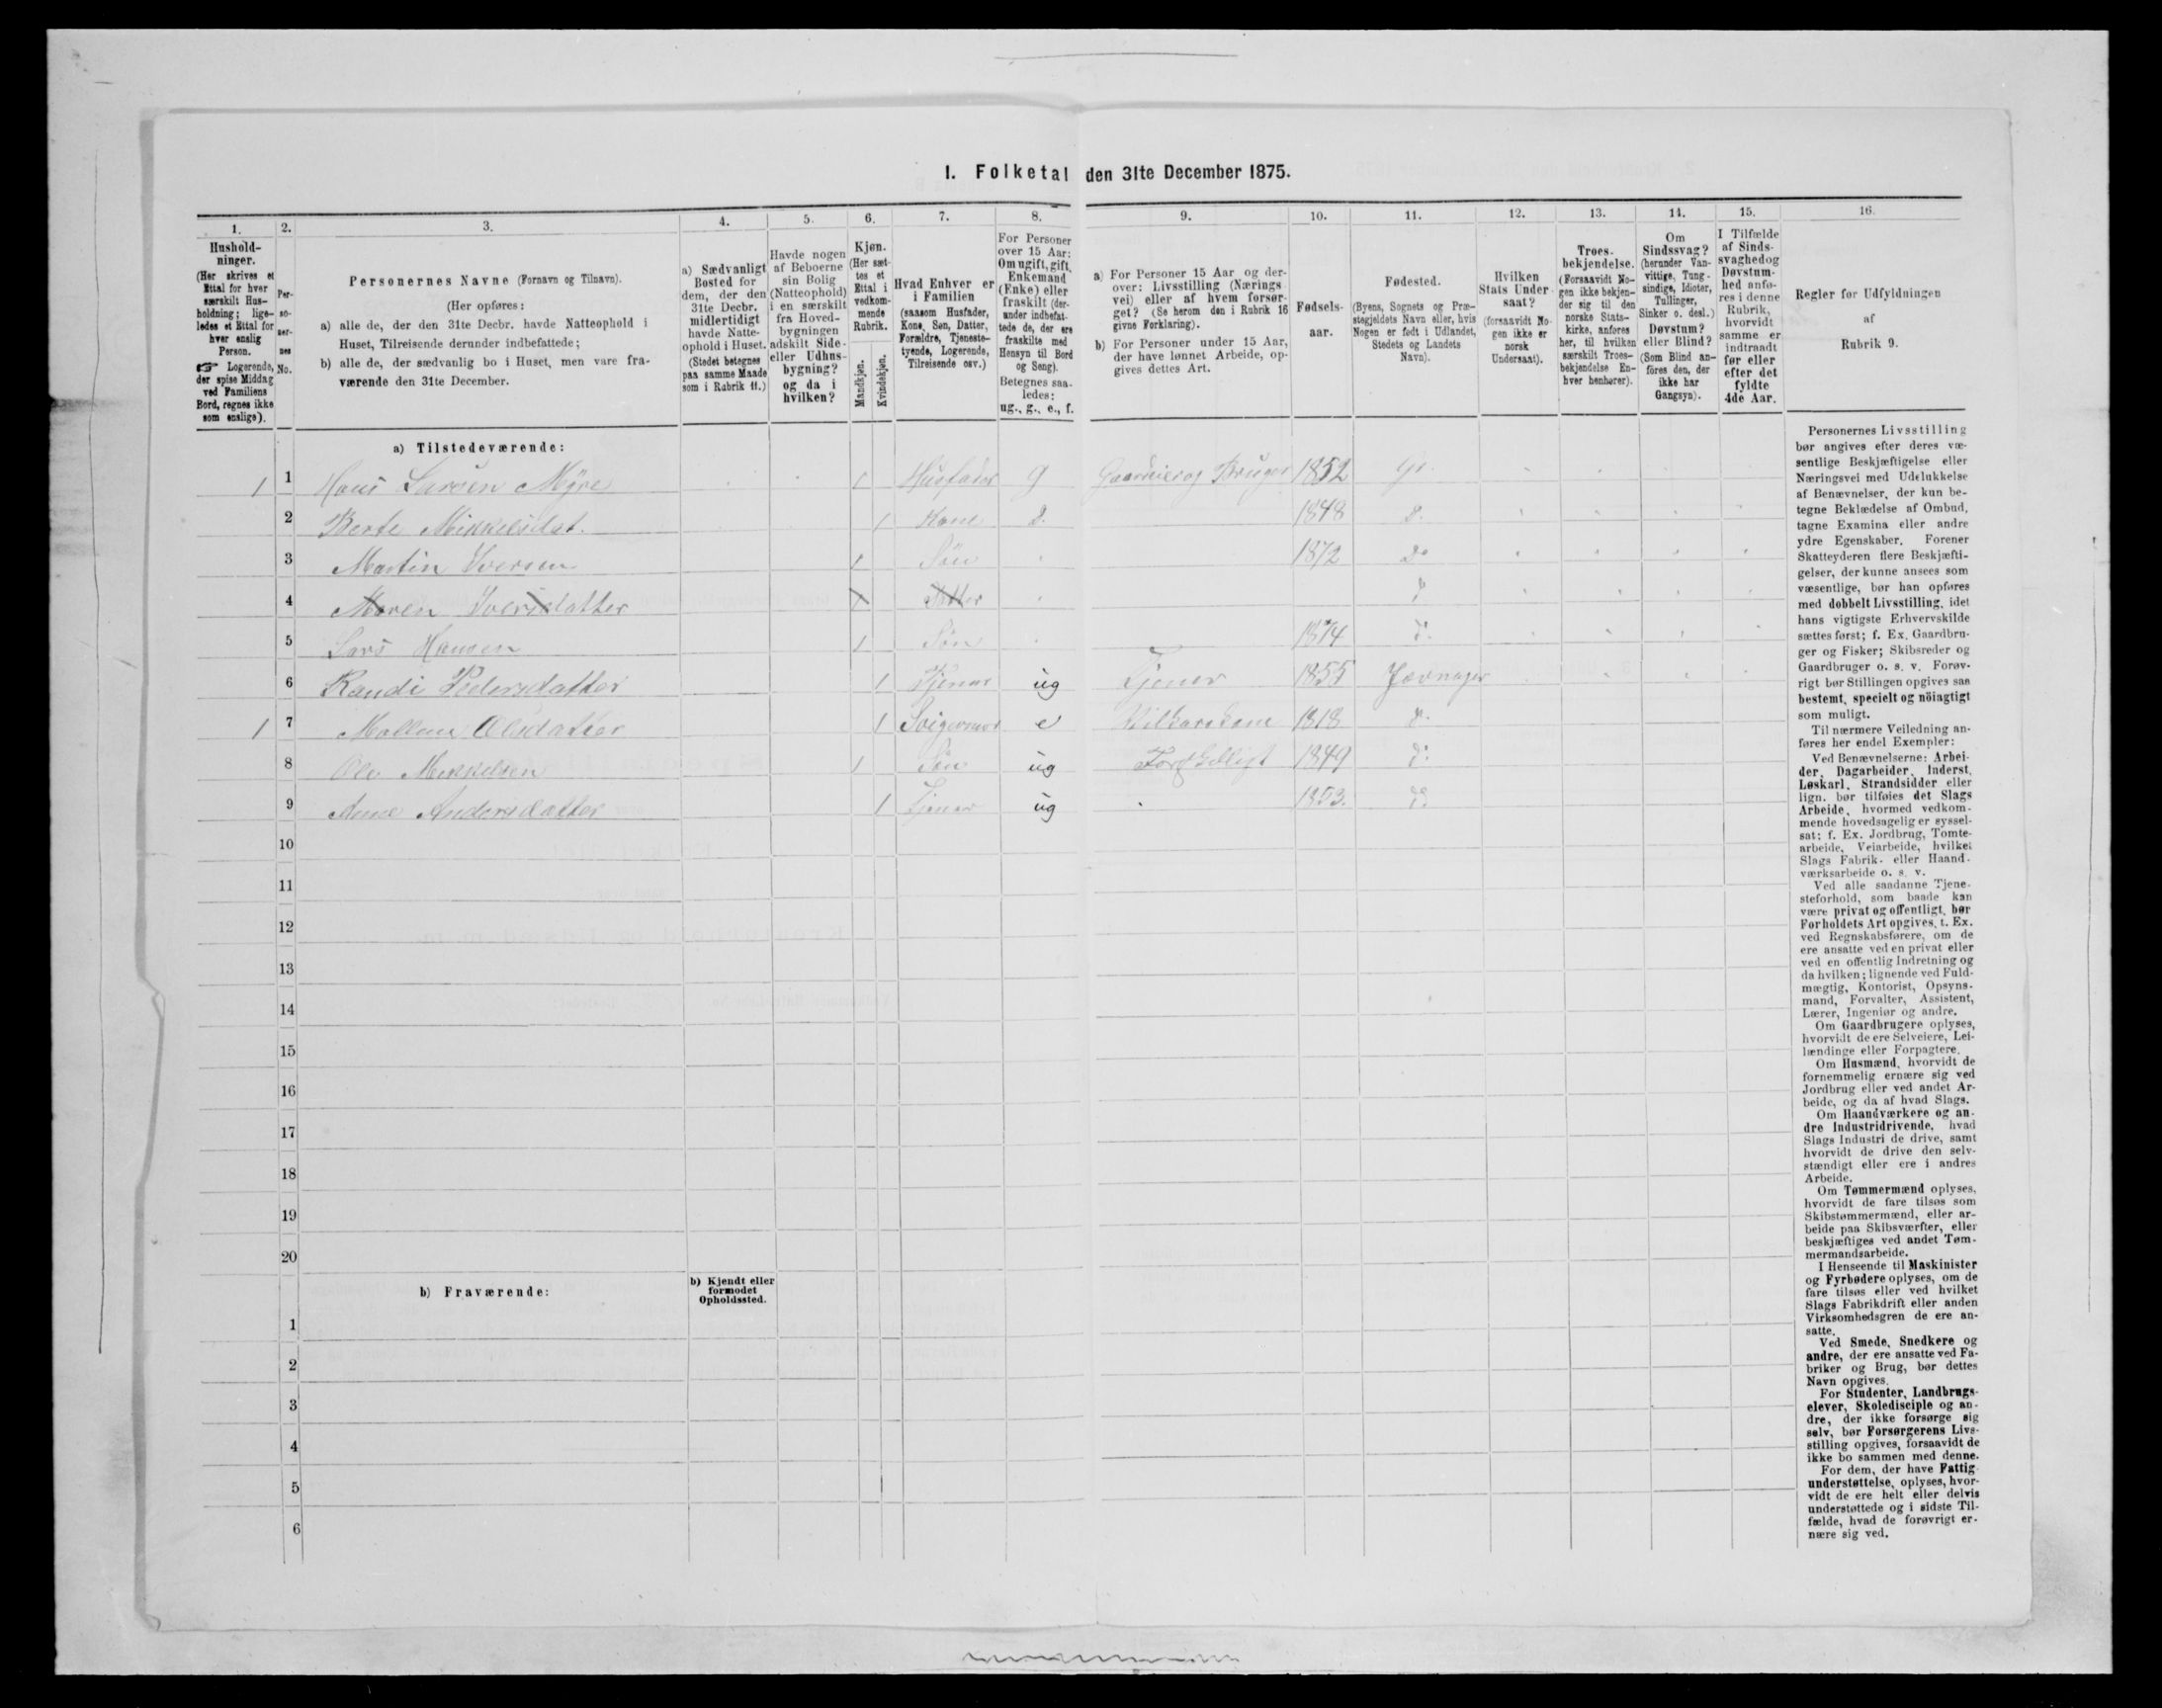 I. Folketal den 31te December 1875.
1. 2. 3. 4. 5. 6. 7. 8. 9. 10. 11. 12. 13. 14. 15. 16.
Hushold-
ninger.
(Her skrives et
Ettal for hver
særskilt Hus-
holdning; lige-
ledes et Ettal for
hver enslig
Person.
☞ Logerende,
der spise Middag
ved Familiens
Bord, regnes ikke
som enslige).
Per-
so-
ner-
nes
No.
Personernes Navne (Fornavn og Tilnavn).
(Her opføres:
a) alle de, der den 31te Decbr. havde Natteophold i
Huset, Tilreisende derunder indbefattede;
b) alle de, der sædvanlig bo i Huset, men vare fra-
værende den 31te December.
a) Sædvanligt
Bosted for
dem, der den
31te Decbr.
midlertidigt
havde Natte-
ophold i Huset.
(Stedet betegnes
paa samme Maade
som i Rubrik 11.)
Havde nogen
af Beboerne
sin Bolig
(Natteophold)
i en særskilt
fra Hoved-
bygningen
adskilt Side-
eller Udhus-
bygning?
og da i
hvilken?
Kjøn.
(Her sæt-
tes et
Ettal i
vedkom-
mende
Rubrik.
Mandkjøn.
Kvindekjøn.
Hvad Enhver er
i Familien
(saasom Husfader,
Kone, Søn, Datter,
Forældre, Tjeneste-
tyende, Logerende,
Tilreisende osv.)
For Personer
over 15 Aar:
Om ugift, gift,
Enkemand
(Enke) eller
fraskilt (der-
under indbefat-
tede de, der ere
fraskilte med
Hensyn til Bord
og Seng).
Betegnes saa-
ledes:
ug., g., e., f.
a) For Personer 15 Aar og der-
over: Livsstilling (Nærings
vei) eller af hvem forsør-
get? (Se herom den i Rubrik 16
givne Forklaring).
b) For Personer under 15 Aar,
der have lønnet Arbeide, op-
gives dettes Art.
Fødsels-
aar.
Fødested.
(Byens, Sognets og Præ-
stegjeldets Navn eller, hvis
Nogen er født i Udlandet,
Stedets og Landets
Navn).
Hvilken
Stats Under
saat?
(forsaavidt No-
gen ikke er
norsk
Undersaat).
Troes-
bekjendelse.
(Forsaavidt No-
gen ikke bekjen-
der sig til den
norske Stats-
kirke, anføres
her, til hvilken
særskilt Troes-
bekjendelse En-
hver henhører).
Om
Sindssvag?
(herunder Van-
vittige, Tung-
sindige, Idioter,
Tullinger,
Sinker o. desl.)
Døvstum?
eller Blind?
(Som Blind an-
føres den, der
ikke har
Gangsyn).
I Tilfælde
af Sinds-
svaghedog
Døvstum-
hed anfø-
res i denne
Rubrik,
hvorvidt
samme er
indtraadt
før eller
efter det
fyldte
4de Aar.
Regler for Udfyldningen
af
Rubrik 9.
a) Tilstedeværende:
1 1 Hans Larsen Myre 1 Husfader g Gaardeier og Bruger 1852 Gr.
2 Berte Mikkelsdat. 1 Kone D. 1848 D.
3 Martin Iversen 1 Søn 1872 Do
4 Maren Iversdatter Datter
5 Lars Hansen 1 Søn 1874 D.
6 Randi Pedersdatter 1 Tjener ug Tjener 1855 Jevnager
1 7 Mallene Olsdatter 1 Svigermor e Vilkaarskone 1818 D.
8 Ole Mikkelsen 1 Søn ug 1849 D.
9 Anne Andersdatter 1 Tjener ug 1853. Do
10
11
12
13
14
15
16
17
18
19
20
b) Fraværende:
b) Kjendt eller
formodet
Opholdssted.
1
2
3
4
5
6
Personernes Livsstilling
bør angives efter deres væ-
sentlige Beskjæftigelse eller
Næringsvei med Udelukkelse
af Benævnelser, der kun be-
tegne Beklædelse af Ombud,
tagne Examina eller andre
ydre Egenskaber. Forener
Skatteyderen flere Beskjæfti-
gelser, der kunne ansees som
væsentlige, bør han opføres
med dobbelt Livsstilling, idet
hans vigtigste Erhvervskilde
sættes først; f. Ex. Gaardbru-
ger og Fisker; Skibsreder og
Gaardbruger o. s. v. Forøv-
rigt bør Stillingen opgives saa
bestemt, specielt og nöiagtigt
som muligt.
Til nærmere Veiledning an-
føres her endel Exempler:
Ved Benævnelserne: Arbei-
der, Dagarbeider, Inderst,
Løskarl, Strandsidder eller
lign. bør tilføies det Slags
Arbeide, hvormed vedkom-
mende hovedsagelig er syssel-
sat; f. Ex. Jordbrug, Tomte-
arbeide, Veiarbeide, hvilket
Slags Fabrik- eller Haand-
værksarbeide o. s. v.
Ved alle saadanne Tjene-
steforhold, som baade kan
være privat og offentligt, bør
Forholdets Art opgives, t. Ex.
ved Regnskabsførere, om de
ere ansatte ved en privat eller
ved en offentlig Indretning og
da hvilken; lignende ved Fuld-
mægtig, Kontorist, Opsyns-
mand, Forvalter, Assistent,
Lærer, Ingeniør og andre.
Om Gaardbrugere oplyses,
hvorvidt de ere Selveiere, Lei-
lændinge eller Forpagtere.
Om Husmænd, hvorvidt de
fornemmelig ernære sig ved
Jordbrug eller ved andet Ar-
beide, og da af hvad Slags.
Om Haandværkere og an-
dre Industridrivende, hvad
Slags Industri de drive, samt
hvorvidt de drive den selv-
stændigt eller ere i andres
Arbeide.
Om Tømmermænd oplyses,
hvorvidt de fare tilsøs som
Skibstømmermænd, eller ar-
beide paa Skibsværfter, eller
beskjæftiges ved andet Tøm-
mermandsarbeide.
I Henseende til Maskinister
og Fyrbødere oplyses, om de
fare tilsøs eller ved hvilket
Slags Fabrikdrift eller anden
Virksomhedsgren de ere an-
satte.
Ved Smede, Snedkere og
andre, der ere ansatte ved Fa-
briker og Brug, bør dettes
Navn opgives.
For Studenter, Landbrugs-
elever, Skoledisciple og an-
dre, der ikke forsørge sig
selv, bør Forsørgerens Livs-
stilling opgives, forsaavidt de
ikke bo sammen med denne.
For dem, der have Fattig-
understøttelse, oplyses, hvor-
vidt de ere helt eller delvis
understøttede og i sidste Til-
fælde, hvad de forøvrigt er-
nære sig ved.